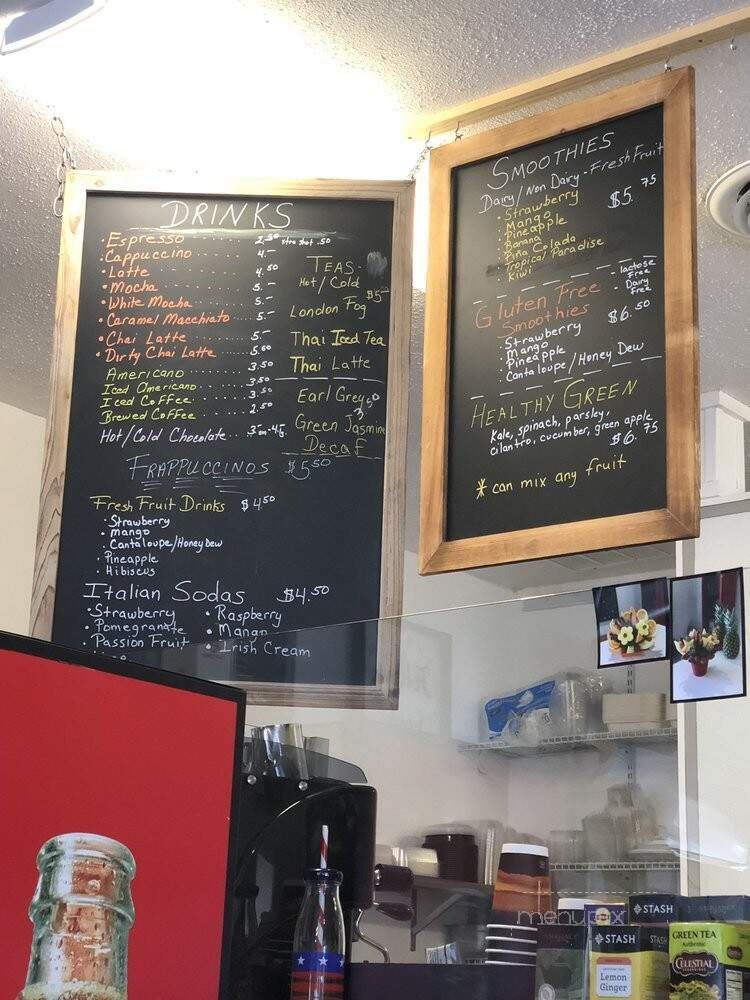 DRINKS
• Espresso ..... 2.50 xtra shot .50
• Cappuccino ..... 4.-
• Latte ..... 4.50
• Mocha ..... 5.-
• White Mocha ..... 5.-
• Caramel Macchiato ..... 5.-
• Chai Latte ..... 5.-
• Dirty Chai Latte ..... 5.60
Americano ..... 3.50
Iced Americano ..... 3.50
Iced Coffee ..... 3.50
Brewed Coffee ..... 2.50
Hot/Cold Chocolate
TEAS
Hot/Cold
$5-
London Fog
Thai Iced Tea
Thai Latte
Earl Grey
Green Jasmine
Decaf
FRAPPUCCINOS $5.50
Fresh Fruit Drinks $4.50
• Strawberry
• mango
• Cantaloupe/Honey Dew
• Pineapple
• Hibiscus
Italian Sodas $4.50
• Strawberry
• Pomegranate
• Passion Fruit
• Raspberry
• Mango
• Irish Cream
SMOOTHIES
Dairy/Non Dairy - Fresh Fruit
$5.75
• Strawberry
• Mango
• Pineapple
• Banana
• Piña Colada
• Tropical Paradise
• Kiwi
- lactose Free
- Dairy free
Gluten Free
Smoothies $6.50
• Strawberry
• Mango
• Pineapple
• Cantaloupe/Honey Dew
HEALTHY GREEN
Kale, spinach, parsley,
cilantro, cucumber, green apple
$6.75
* can mix any fruit
menupix
STASH
STASH
STASH
Lemon
Ginger
GREEN TEA
Authentic
CELESTIAL